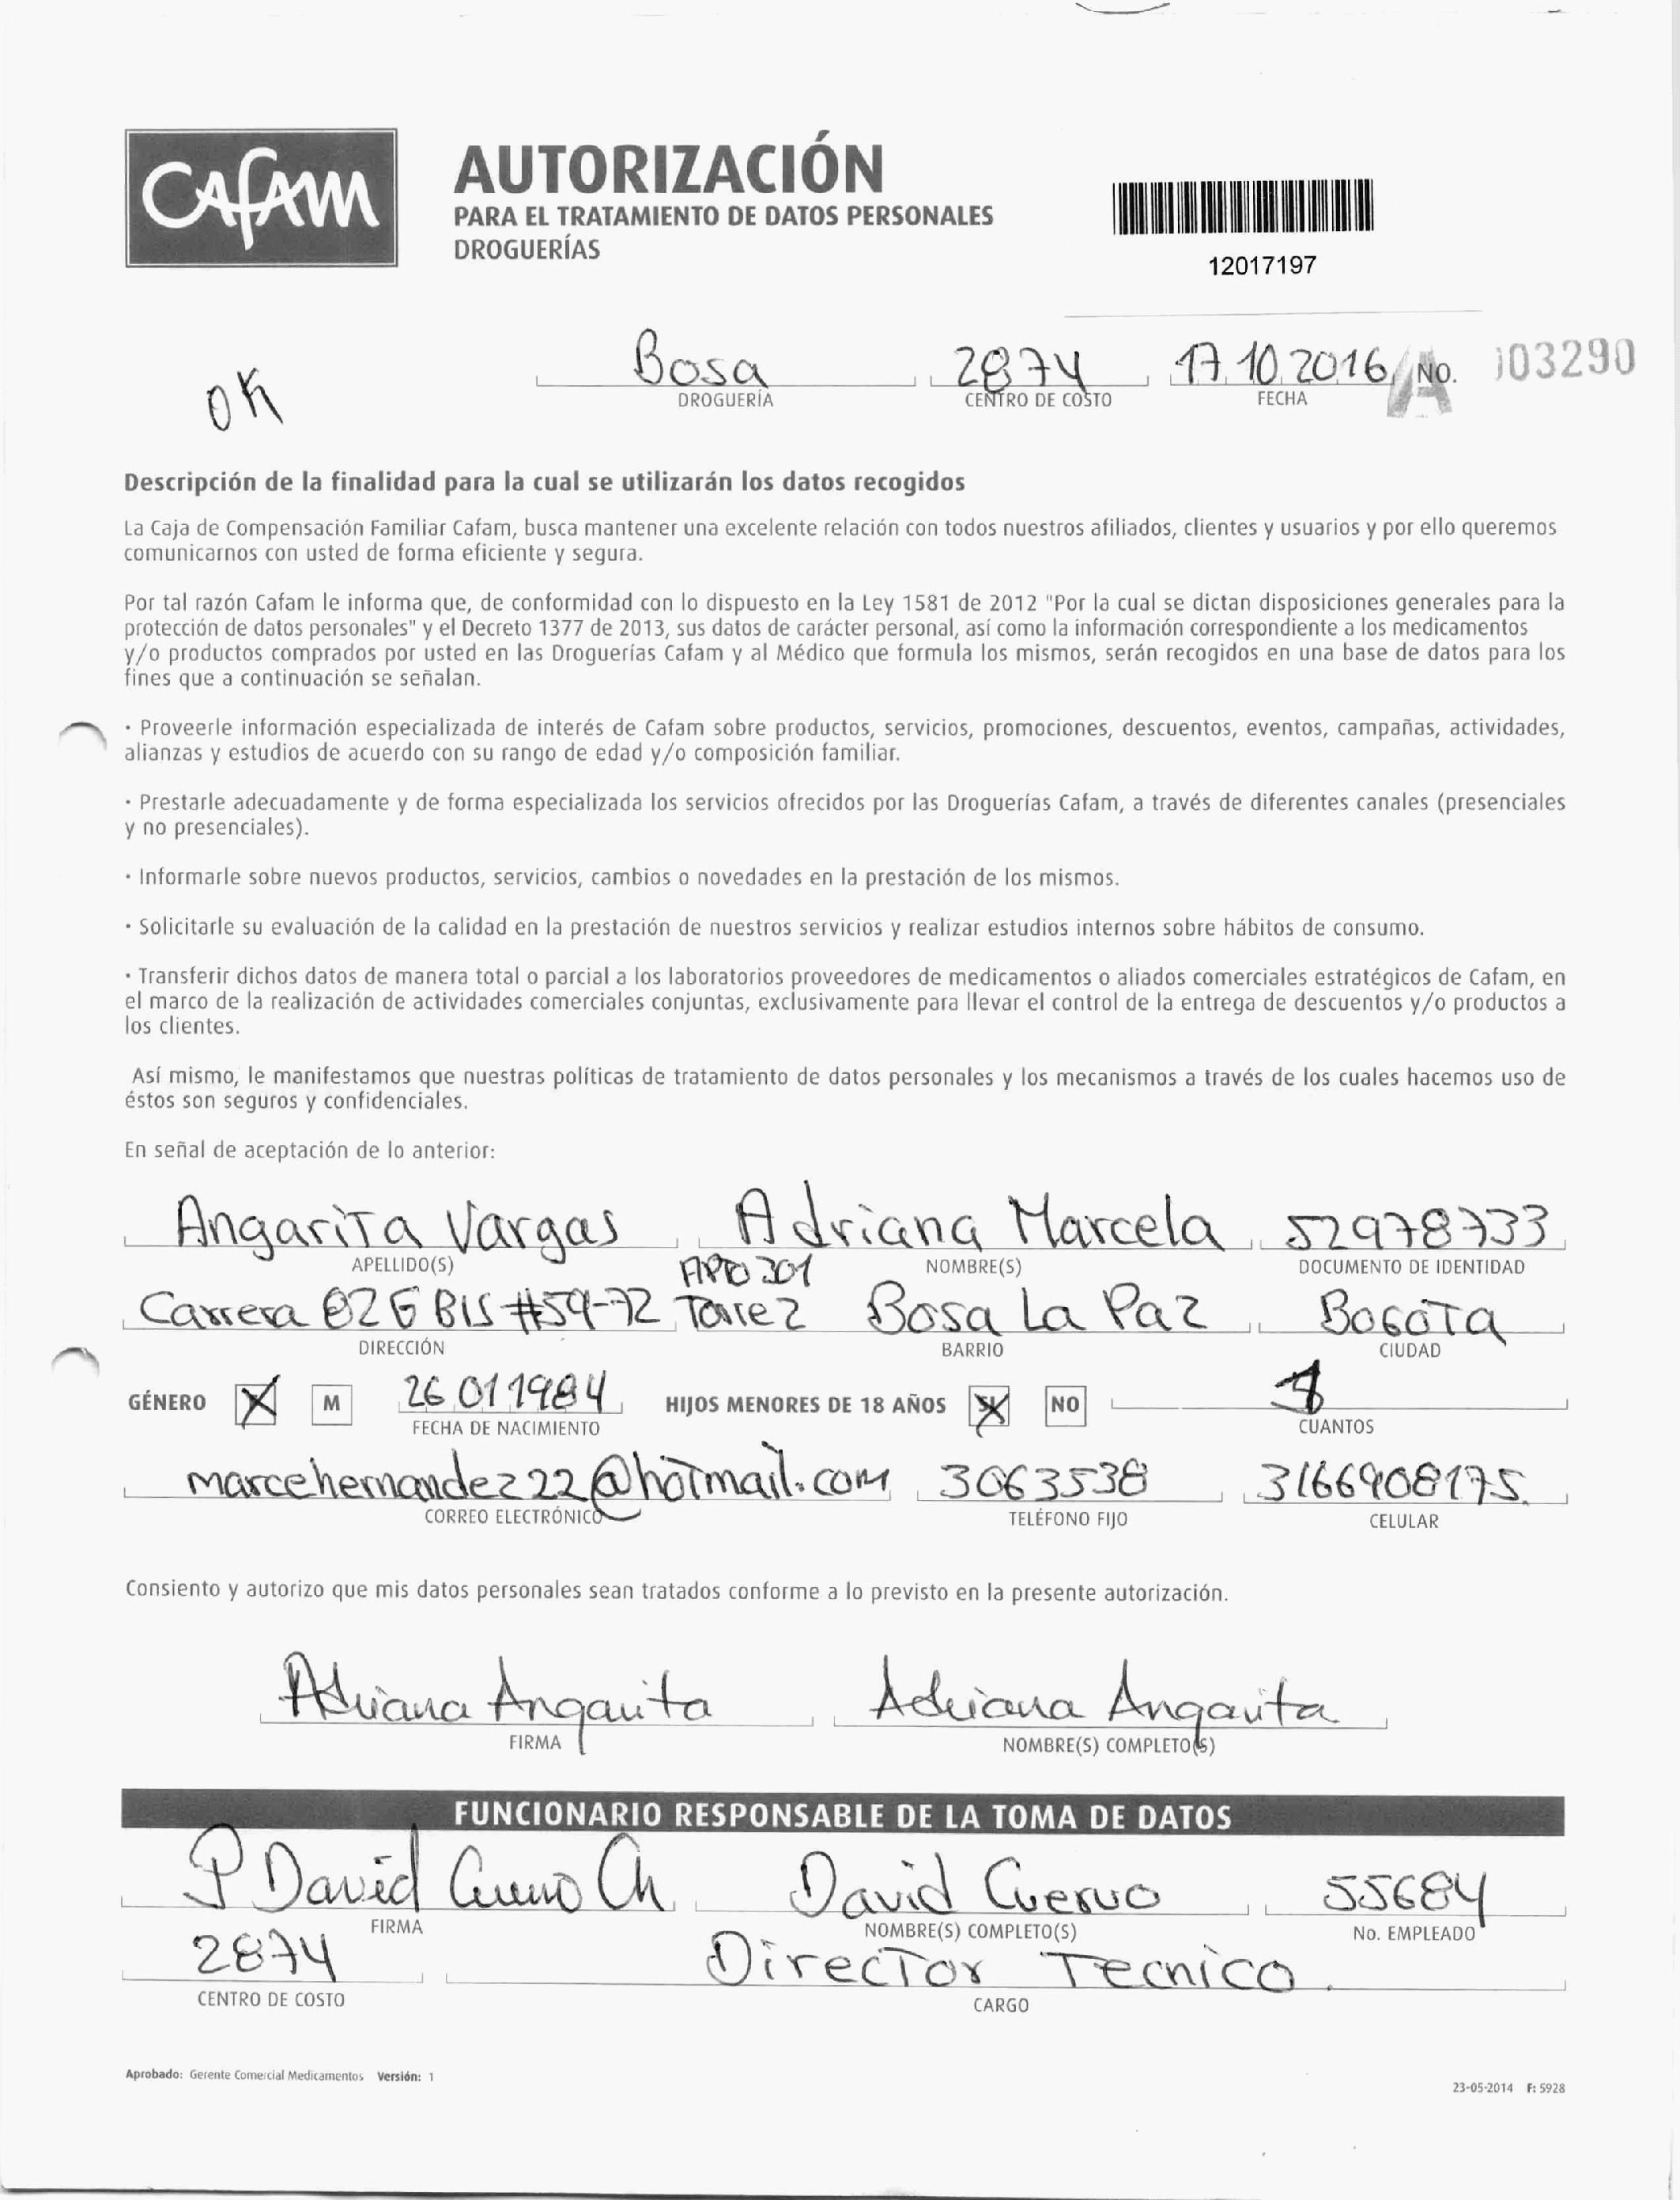 CAFAM
AUTORIZACIÓN
PARA EL TRATAMIENTO DE DATOS PERSONALES
DROGUERÍAS
12017197
OK
Bosa 2874 17 10 2016 A No. 103290
DROGUERÍA CENTRO DE COSTO FECHA
Descripción de la finalidad para la cual se utilizarán los datos recogidos
La Caja de Compensación Familiar Cafam, busca mantener una excelente relación con todos nuestros afiliados, clientes y usuarios y por ello queremos
comunicarnos con usted de forma eficiente y segura.
Por tal razón Cafam le informa que, de conformidad con lo dispuesto en la Ley 1581 de 2012 "Por la cual se dictan disposiciones generales para la
protección de datos personales" y el Decreto 1377 de 2013, sus datos de carácter personal, así como la información correspondiente a los medicamentos
y/o productos comprados por usted en las Droguerías Cafam y al Médico que formula los mismos, serán recogidos en una base de datos para los
fines que a continuación se señalan.
· Proveerle información especializada de interés de Cafam sobre productos, servicios, promociones, descuentos, eventos, campañas, actividades,
alianzas y estudios de acuerdo con su rango de edad y/o composición familiar.
· Prestarle adecuadamente y de forma especializada los servicios ofrecidos por las Droguerías Cafam, a través de diferentes canales (presenciales
y no presenciales).
· Informarle sobre nuevos productos, servicios, cambios o novedades en la prestación de los mismos.
· Solicitarle su evaluación de la calidad en la prestación de nuestros servicios y realizar estudios internos sobre hábitos de consumo.
· Transferir dichos datos de manera total o parcial a los laboratorios proveedores de medicamentos o aliados comerciales estratégicos de Cafam, en
el marco de la realización de actividades comerciales conjuntas, exclusivamente para llevar el control de la entrega de descuentos y/o productos a
los clientes.
Así mismo, le manifestamos que nuestras políticas de tratamiento de datos personales y los mecanismos a través de los cuales hacemos uso de
éstos son seguros y confidenciales.
En señal de aceptación de lo anterior:
Angarita Vargas Adriana Marcela 52978733
APELLIDO(S) NOMBRE(S) DOCUMENTO DE IDENTIDAD
APTO 301
Carrera 82G BIS #59-72 Torre 2 Bosa La Paz Bogota
DIRECCIÓN BARRIO CIUDAD
GÉNERO X M 26 01 1984 HIJOS MENORES DE 18 AÑOS SI NO 1
FECHA DE NACIMIENTO CUANTOS
marcehernandez22@hotmail.com 3063538 3166908175
CORREO ELECTRÓNICO TELÉFONO FIJO CELULAR
Consiento y autorizo que mis datos personales sean tratados conforme a lo previsto en la presente autorización.
Adriana Angarita Adriana Angarita
FIRMA NOMBRE(S) COMPLETO(S)
FUNCIONARIO RESPONSABLE DE LA TOMA DE DATOS
P David Cuervo Ch David Cuervo 55684
FIRMA NOMBRE(S) COMPLETO(S) No. EMPLEADO
2874 Director Tecnico.
CENTRO DE COSTO CARGO
Aprobado: Gerente Comercial Medicamentos Versión: 1
23-05-2014 F: 5928